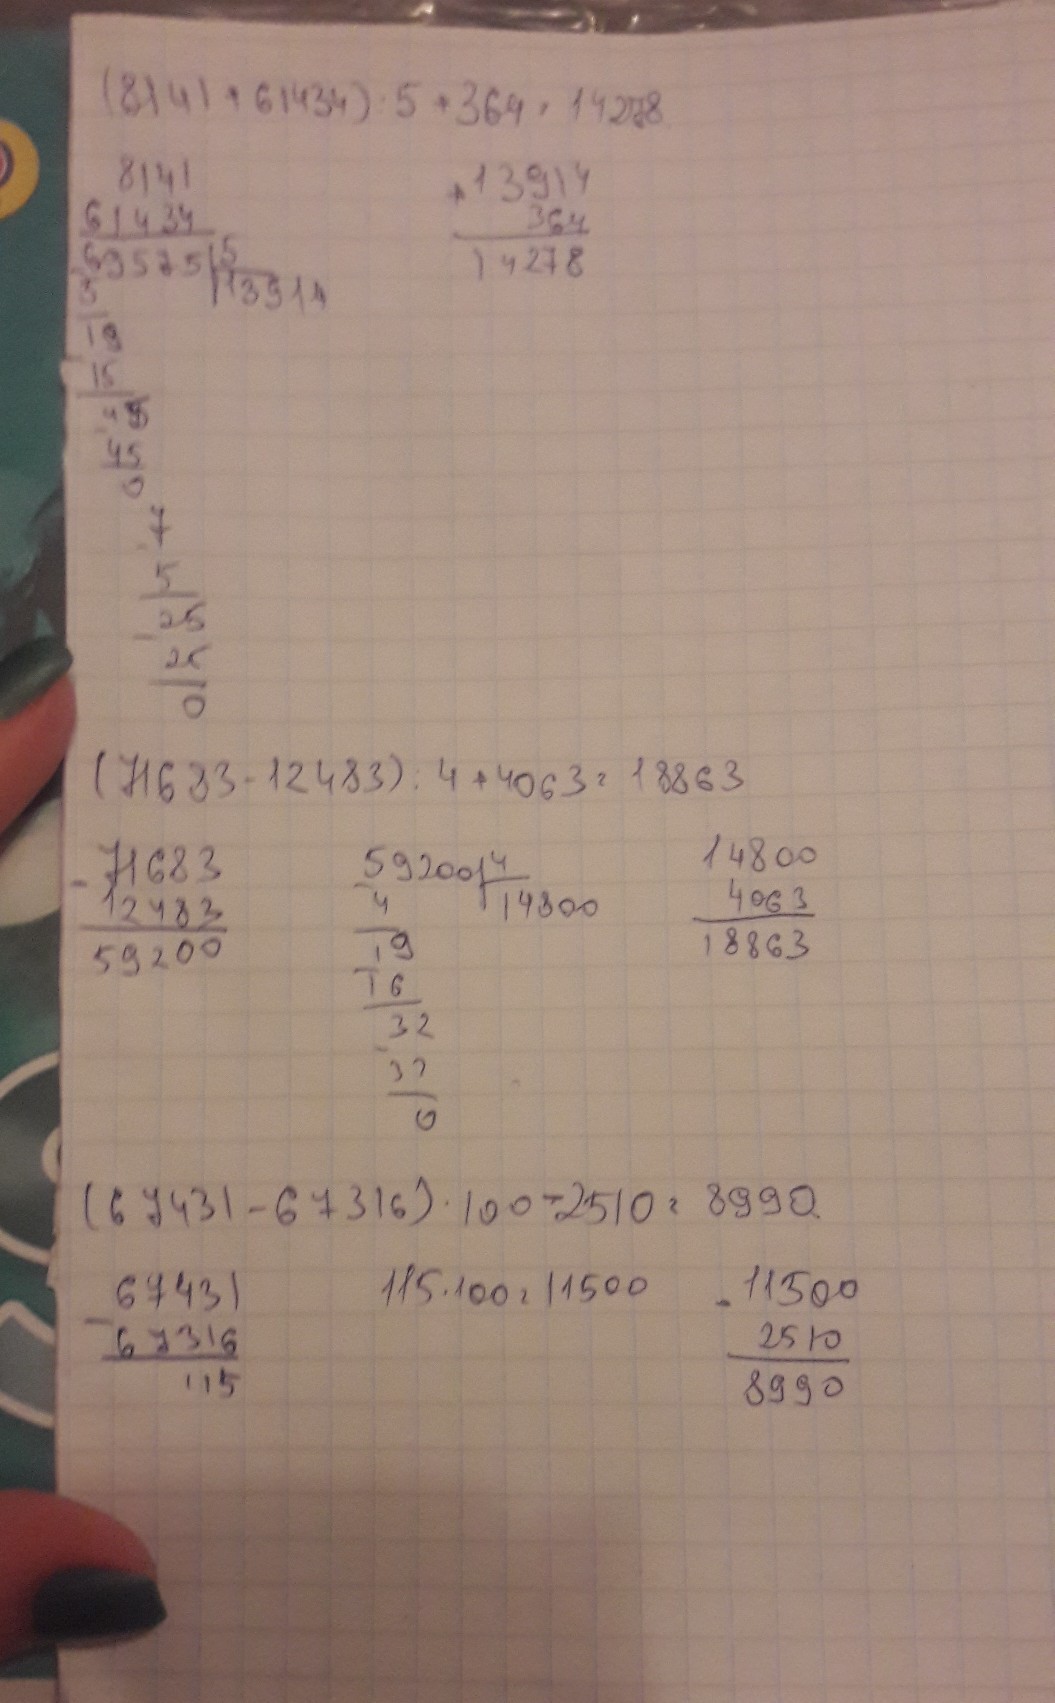 (8141+61434):5+364=14278
8141
61434
69575|5
13914
5
19
15
45
45
0
7
5
25
25
0
+13914
364
14278
(71683-12483):4+4063=18863
-71683
12483
59200
59200|4
14800
4
19
16
32
32
0
14800
4063
18863
(67431-67316)·100-2510=8990
-67431
67316
115
115·100=11500
-11500
2510
8990